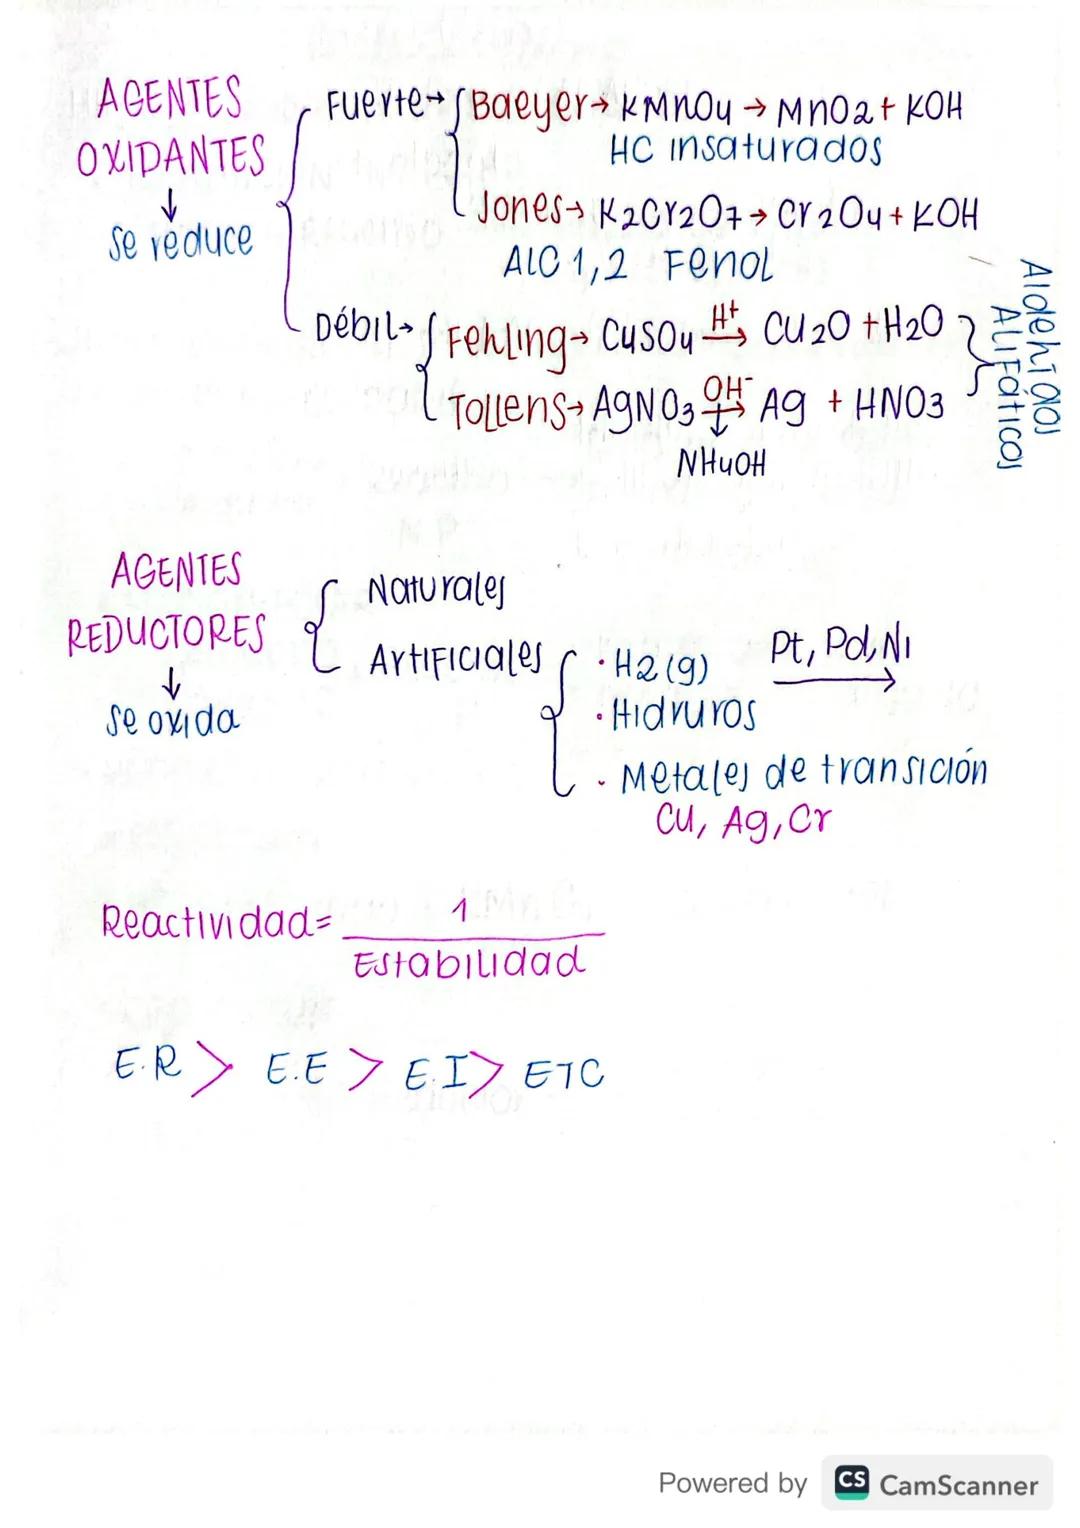 AGENTES
OXIDANTES
↓
se reduce
Fuerte→
Baeyer→ KMnO4 → MnO2 + KOH
HC insaturados
Jones→ K2Cr2O7 → Cr2O4 + KOH
Alc 1,2 Fenol
Débil→
Fehling→ CuSO4 H+→ Cu2O + H2O
Tollens→ AgNO3 OH-→ Ag + HNO3
↓
NH4OH
Aldehídos
Alifáticos
AGENTES
REDUCTORES
↓
se oxida
Naturales
Artificiales
· H2 (g) Pt, Pd, Ni →
· Hidruros
· Metales de transición
Cu, Ag, Cr
Reactividad= 1
Estabilidad
E.R > E.E > E.I > ETC
Powered by CS CamScanner